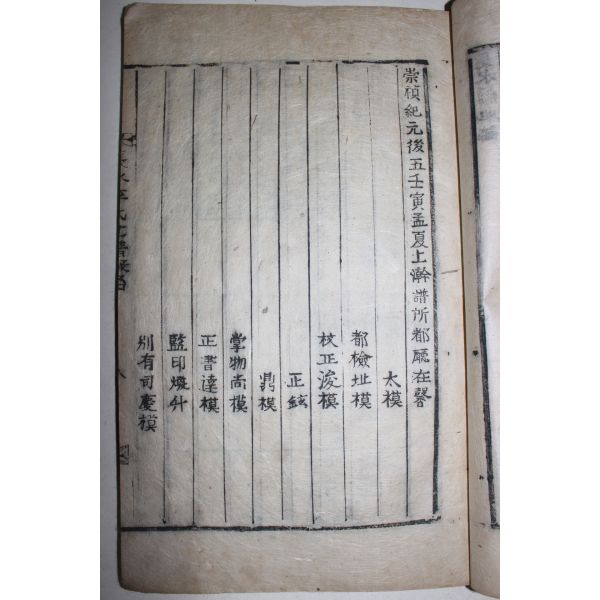 崇禎紀元後五壬寅孟夏上澣譜所都廳在馨
太模
都檢址模
校正浚模
正鉉
鼎模
掌物尚模
正書達模
監印升
別有司慶模